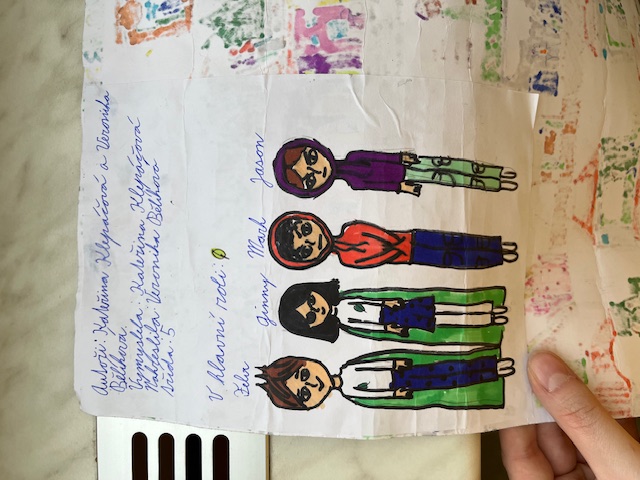 Autoři: Kateřina Klepáčová a Veronika
Bětíková
Vymyslela: Kateřina Klepáčová
Nakreslila: Veronika Bětíková
třída: 5
V hlavní roli:
Ginny Mark Jason